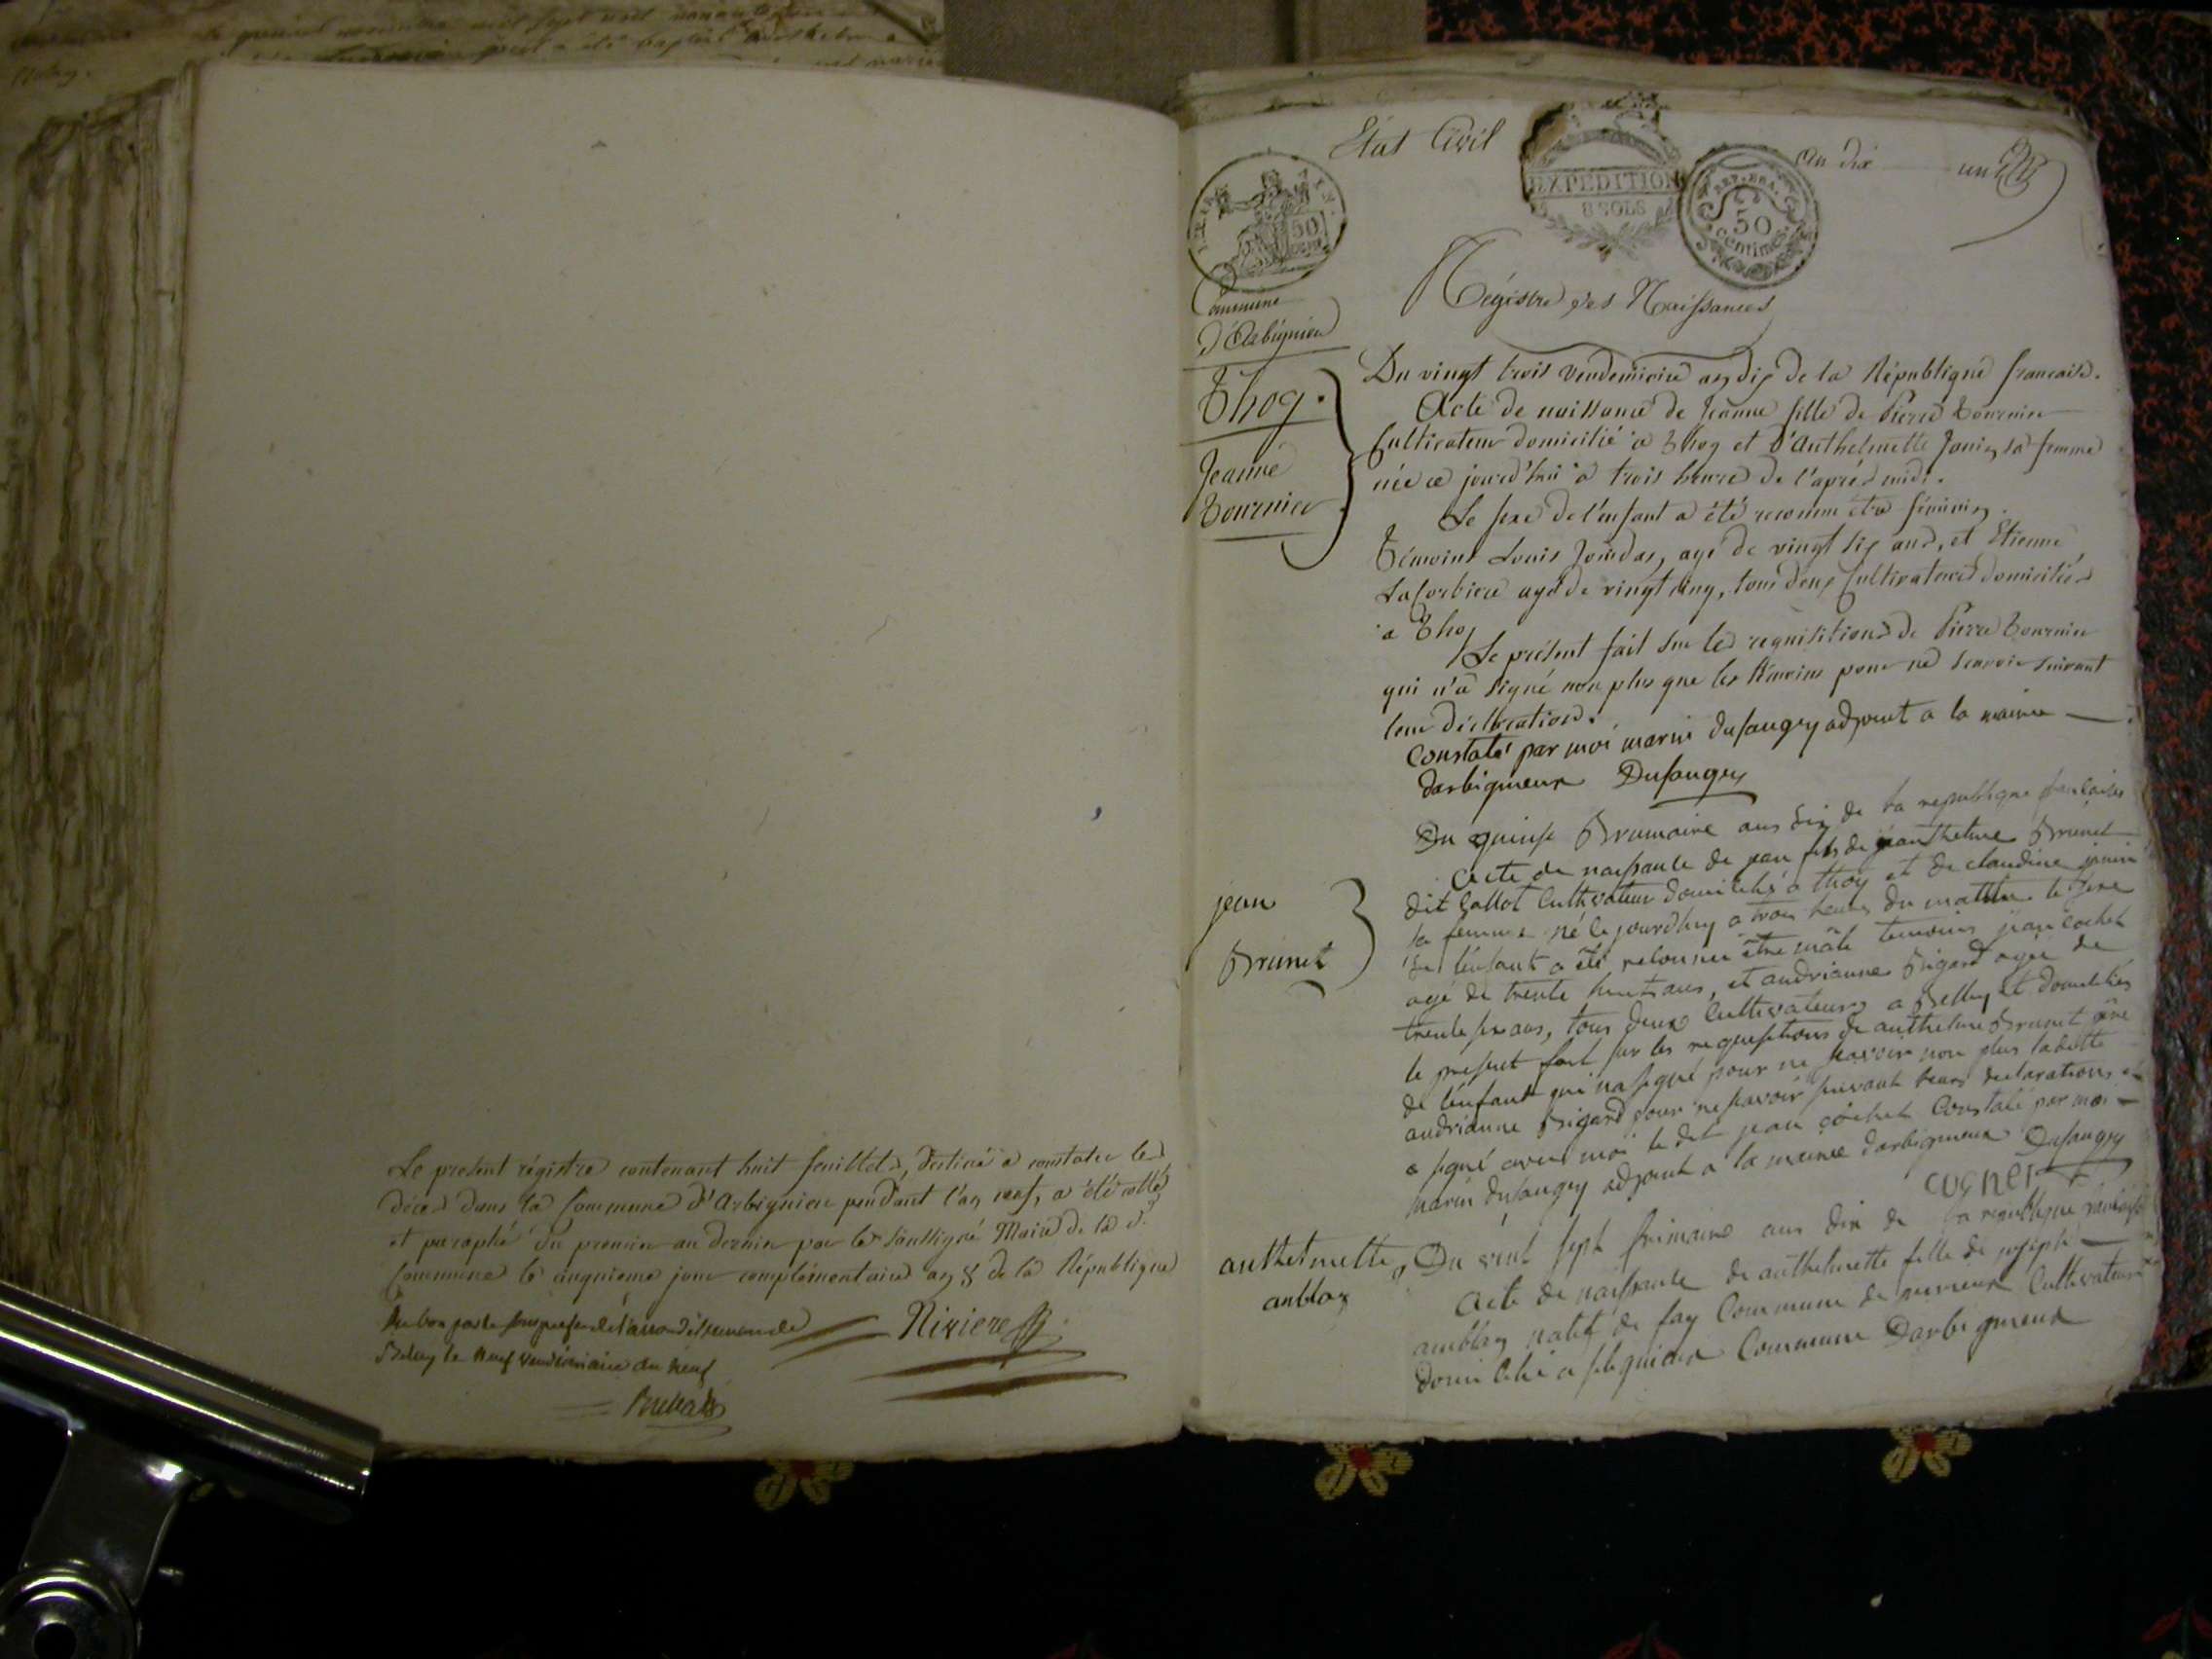 Le present régistre contenant huit feuillets, destiné a constater les
décès dans la Commune d'Arbignieu pendant l'an neuf, a été cotté
et paraphé du premier au dernier par le soussigné Maire de la d.
Commune le cinquieme jour complémentaire an 8 de la République
Riviere
Belley le neuf vendémiaire an neuf
Etat Civil
an dix
un
EXPEDITION
8 SOLS
REP. FRA.
50
centimes
50
Commune
d'Arbignieu
Régistre des Naissances
Thoy.
Jeanne
Tournier
Du vingt trois Vendemiaire an dix de la République francaise.
Acte de naissance de Jeanne fille de Pierre Tournier
Cultivateur domicilié a Thoy et d'Anthelmette Janin sa femme
née ce jourd'hui a trois heures de l'après midi.
Le sexe de l'enfant a été reconnu être féminin.
Témoins Louis Jourdan, agé de vingt six ans, et Etienne
Lacorbiere agé de vingt cinq, tous deux Cultivateurs domiciliés
a Thoy
Le présent fait sur les requisitions de Pierre Tournier
qui n'a signé non plus que les témoins pour ne scavoir suivant
leur déclarations.
Constaté par moi marin dusaugey adjoint a la mairie
darbignieux Dusaugey
jean
Brunet
Du quinse Brumaire ans dix de la republique francaises
Acte de naissance de jean fils de jeanthelme Brunet
dit Gallot Cultivateur domicilié a thoy et de claudine janin
sa femme né le jourdhuy a trois heures du matin le sexe
de l'enfant a été reconnu être mâle temoins jean cochet
agé de trente huit ans, et andrianne Brigard agée de
trente six ans, tous deux Cultivateurs a Belley et domiciliés
le present fait sur les requisitions de anthelme Brunet père
de l'enfant qui na signé pour ne scavoir non plus laditte
andrianne Brigard pour ne scavoir suivant leurs declarations et
a signé avec moi le dit jean cochet Constaté par moi
marin dusaugey adjoint a la mairie darbignieux Dusaugey
anthelmette
anblaz
Du vint sept frimaire ans dix de la republique
Acte de naissance de anthelmette fille de joseph
amblaz natif de fay Commune de peyrieux Cultivateur
domicilié a slegnieux Commune Darbignieux